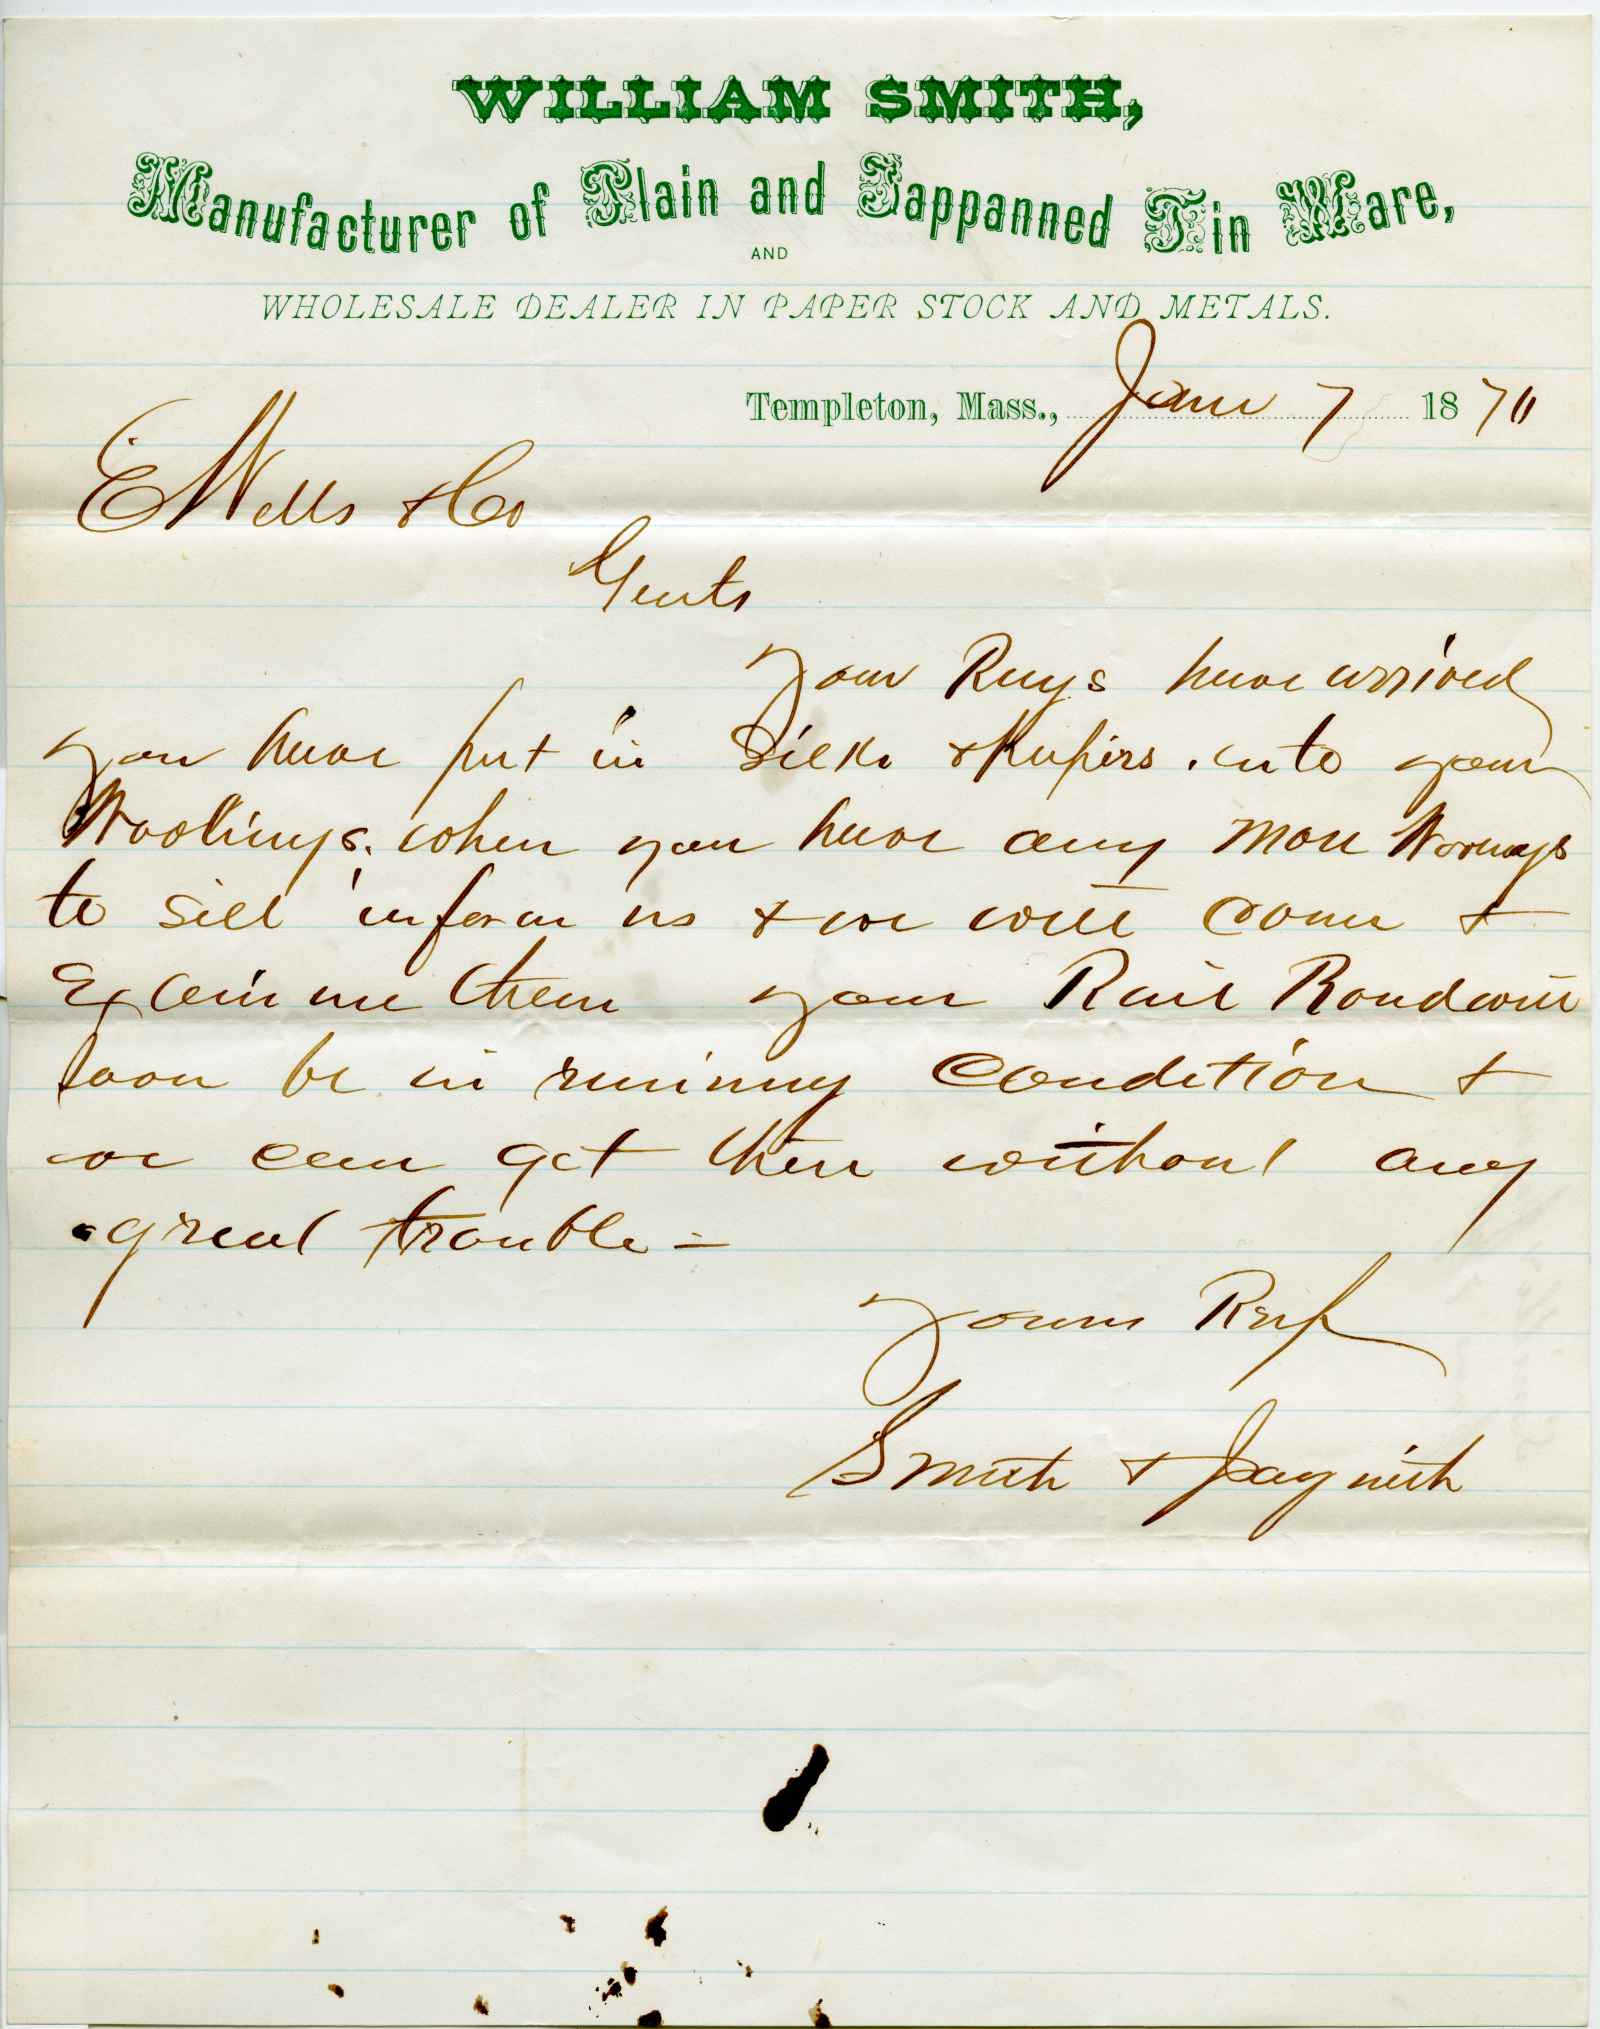 WILLIAM SMITH,
Manufacturer of Plain and Jappanned Tin Ware,
AND
WHOLESALE DEALER IN PAPER STOCK AND METALS.
Templeton, Mass., Jan 7 1870
E Wells & Co
Gents
your Rags have arrived
you have put in Silks & into your
when you have any more
to sell inform us & we will come &
Examine them your Rail Road will
soon be in runing Condition &
we can get there without any
great trouble -
yours Resp
Smith &